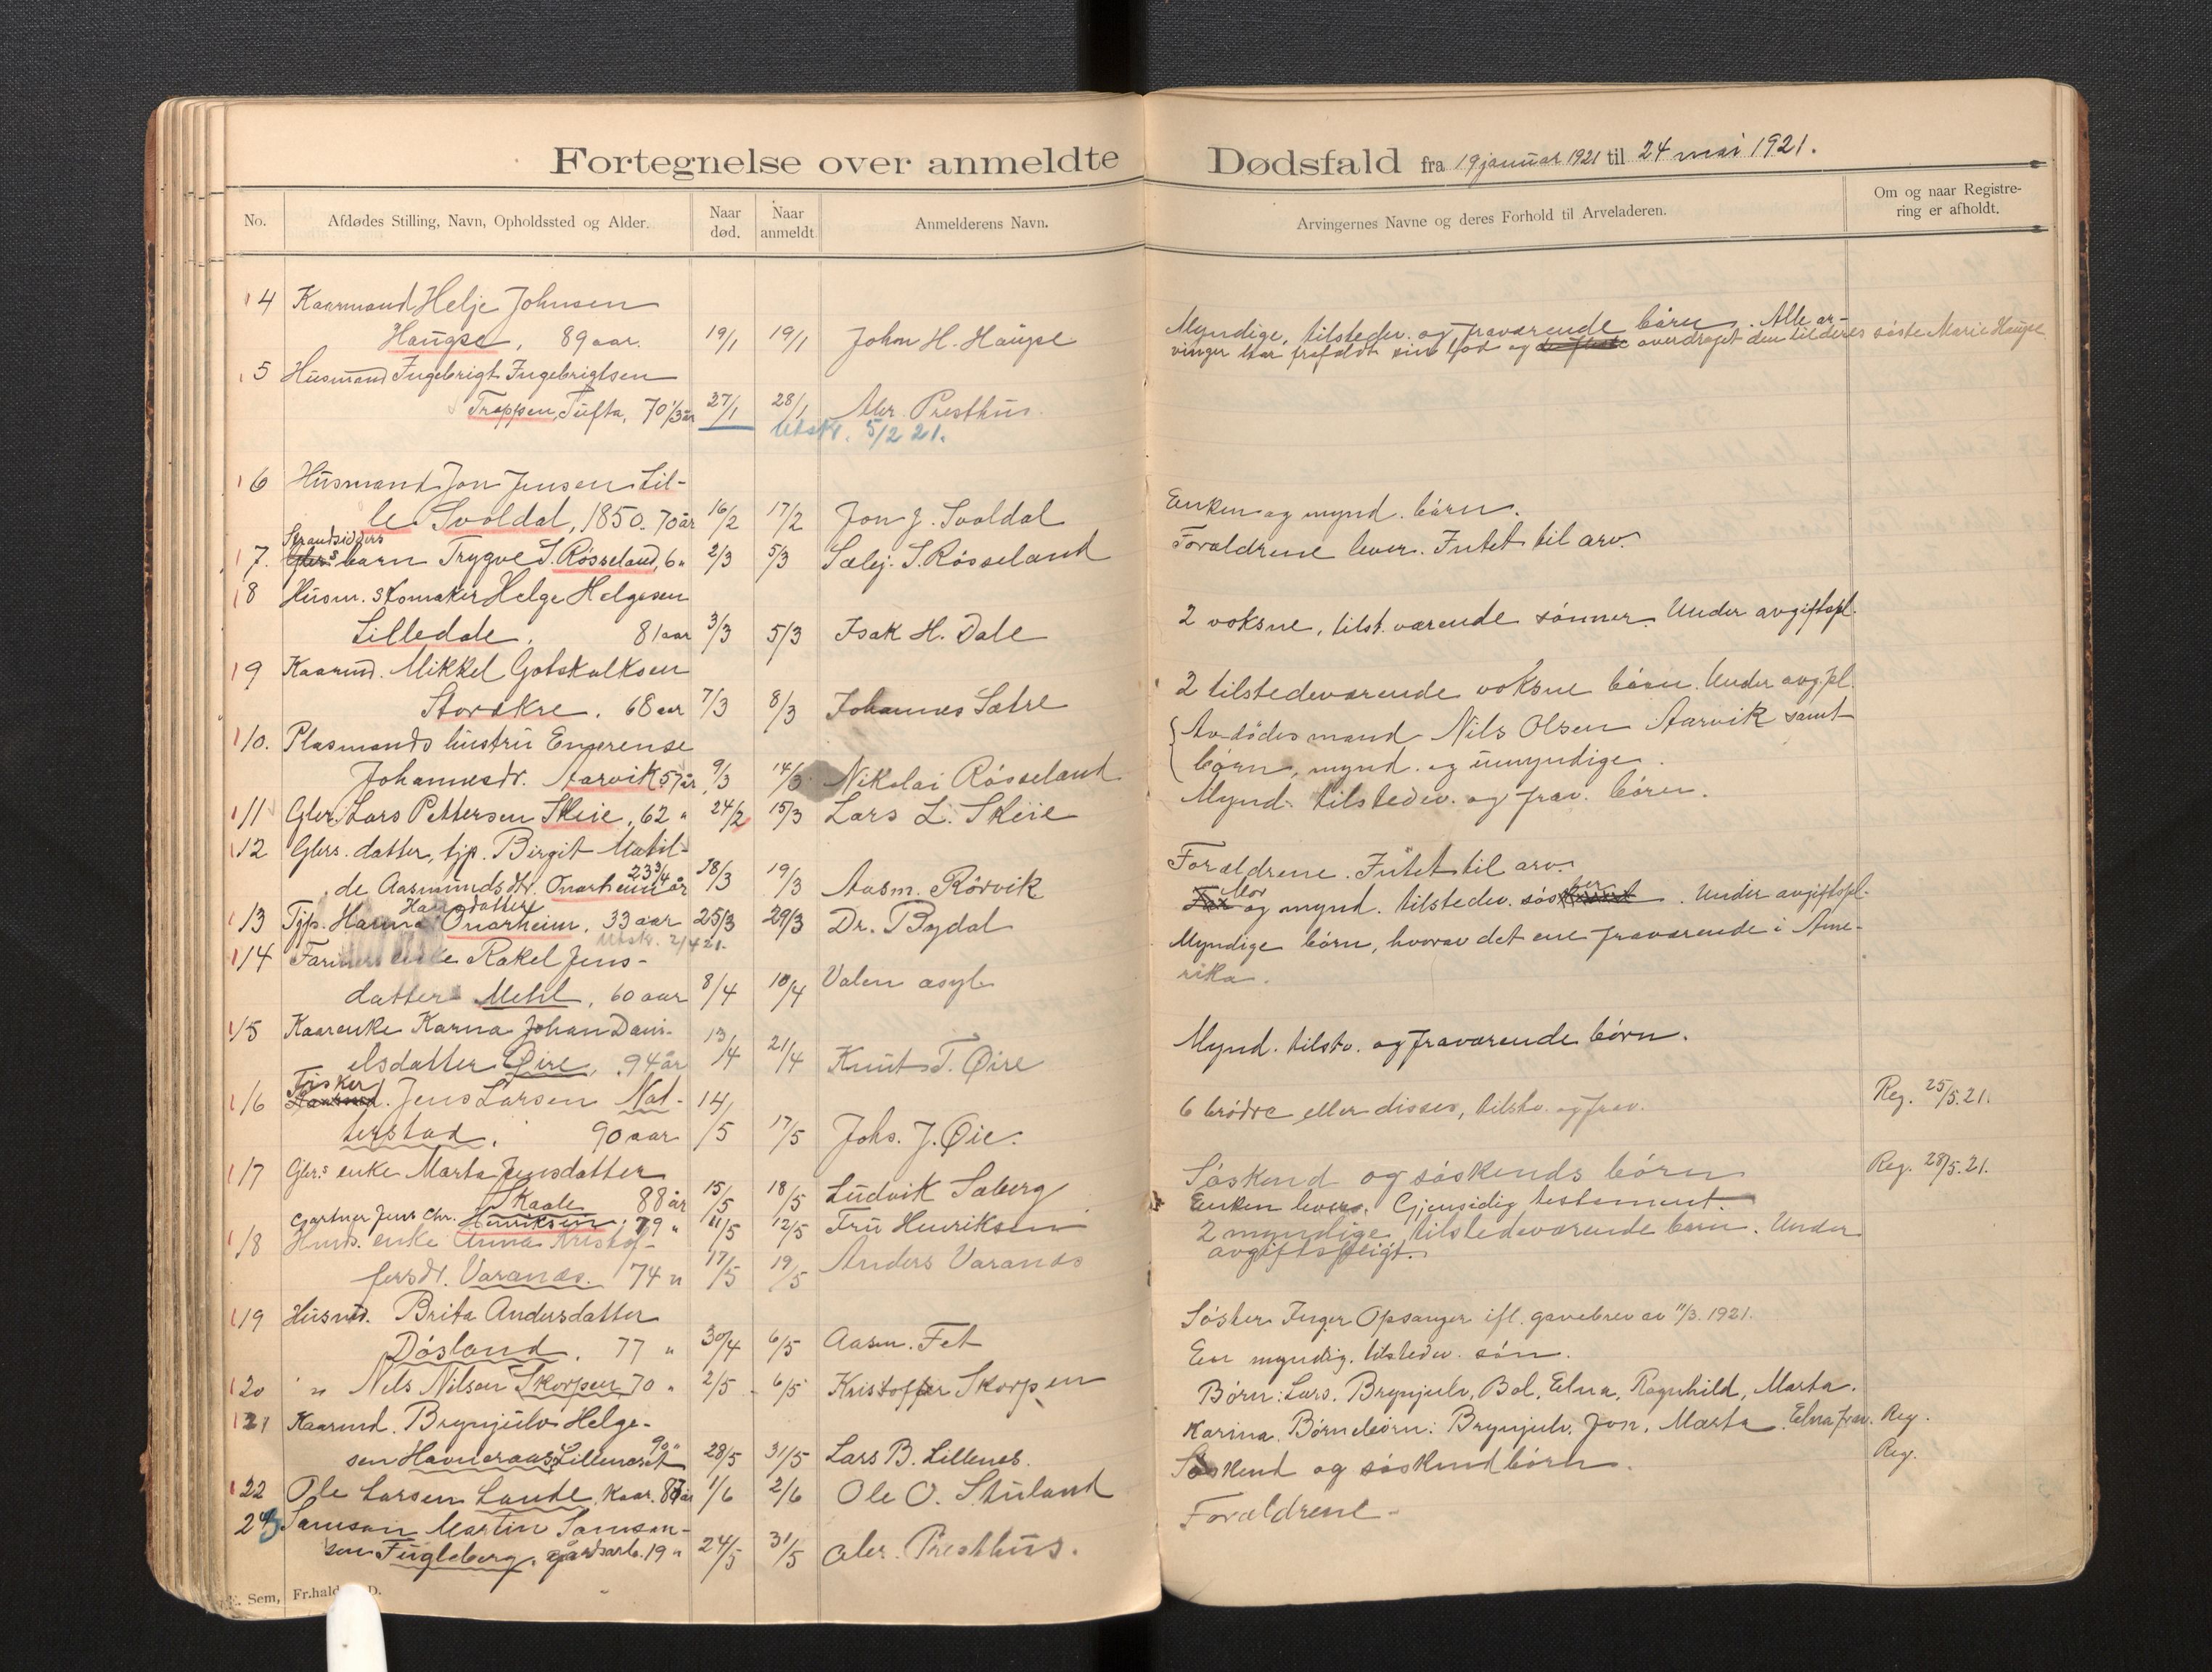 Fortegnelse over anmeldte Dødsfald fra 19 januar 1921 til 24 mai 1921.
No. Afdødes Stilling, Navn, Opholdssted og Alder. Naar død. Naar anmeldt Anmelderens Navn. Arvingernes Navne og deres Forhold til Arveladeren. Om og naar Registrering er afholdt.
4 Kaarmand Helje Johnsen
Haugse, 89 aar. 19/1 19/1 John H. Haugse
Myndige, tilstedev. og fraværende børn. Alle ar-
vinger har frafaldt sin lod og overdraget den til deres søster Marie Haugse
5 Husmand Ingebrigt Ingebrigtsen
Trappen, Tufta, 70 1/3 år 27/1 28/1 Aler. Presthus.
Utskr. 5/2 21.
6 Husmand Jon Jensen Lil-
le Svoldal, 1850. 70 år 16/2 17/2 Jon J. Svoldal Enken og mynd. børn.
Strandsidders
7. Gbrs barn Trygve S. Røsseland, 6 " 2/3 5/3 Sælej. S. Røsseland Forældrene lever. Intet til arv.
8 Husm. skomaker Helge Helgesen
Lilledale. 81 aar 3/3 5/3 Isak H. Dale 2 voksne, tilst. værende sønner. Under avgiftspl.
9 Kaarmd. Mikkel Gotskalksen
Storakre. 68 aar 7/3 8/3 Johannes Sætre 2 tilstedeværende voksne børn. Under avg.pl.
10. Plasmands hustru Engerense
Johannesdr. Aarvik 57 år, 9/3 14/3 Nikolai Røsseland
Avdødes mand Nils Olsen Aarvik samt
børn, mynd. og umyndige.
11 Gbr. Lars Pettersen Skeie, 62 " 24/2 15/3 Lars L. Skeie Mynd. tilstedev. og frav. børn.
12 Gbrs. datter, tjp. Birgit Matil-
de Aasmundsdtr. Onarheim 23 3/4 år 18/3 19/3 Aasm. Rørvik Forældrene. Intet til arv.
Hansdatter
13 Tjp. Hanna Onarheim, 33 aar 25/3 29/3 Dr. Bydal Mor og mynd. tilstedev. søsker. Under avgiftspl.
Utskr. 2/4 21.
14 Farmers enke Rakel Jens-
datter Mehl, 60 aar 8/4 10/4 Valen asyl
Myndige børn, hvorav det ene fraværende i Ame-
rika.
15 Kaarenke Karna Johan Dani-
elsdatter Øire, 94 år 13/4 21/4 Knut T. Øire Mynd. tilstv. og fraværende børn.
Fisker
16 Kaarmd. Jens Larsen Nat-
terstad. 90 aar 14/5 17/5 Johs. J. Øie. 6 brødre eller disses, tilstv. og frav. Reg. 25/5. 21.
17 Gbrs enke Marta Jensdatter
Skaale 88 år 15/5 18/5 Ludvik Saberg Søskend og søskends børn Reg. 28/5. 21.
Gartner Jens Chr. Henriksen, 79 " 11/5 12/5 Fru Henriksen Enken lever. Gjensidig testament.
18 Husm. enke Anna Kristof-
fersdr. Varanes. 74 " 17/5 19/5 Anders Varanes
2 myndige, tilstedeværende børn. Under
avgiftspligt.
19 Husmd. Brita Andersdatter
Døsland. 77 " 30/4 6/5 Aasm. Fet Søster Inger Opsanger ifl. gavebrev av 11/3. 1921.
20 " Nels Nilsen Skorpen 70 " 2/5 6/5 Kristoffer Skorpen En myndig. tilstedev. søn.
21 Kaarmd. Brynjulv Helge-
sen Havneraas, Lillenæset 90 " 28/5 31/5 Lars B. Lillenes.
Børn: Lars, Brynjulv, Bol, Elna, Ragnhild, Marta.
Karina. Børnebørn: Brynjulv, Jon, Marta. Elna frav. Reg.
22 Ole Larsen Lande, kaar. 87 år 1/6 2/6 Ole O. Stuland Søskend og søskendbørn. Reg.
23 Samson Martin Samson-
sen Fugleberg, gårdsarb. 19 " 24/5 31/5 Aler. Presthus. Forældrene -
E. Sem, Fr.hald D.